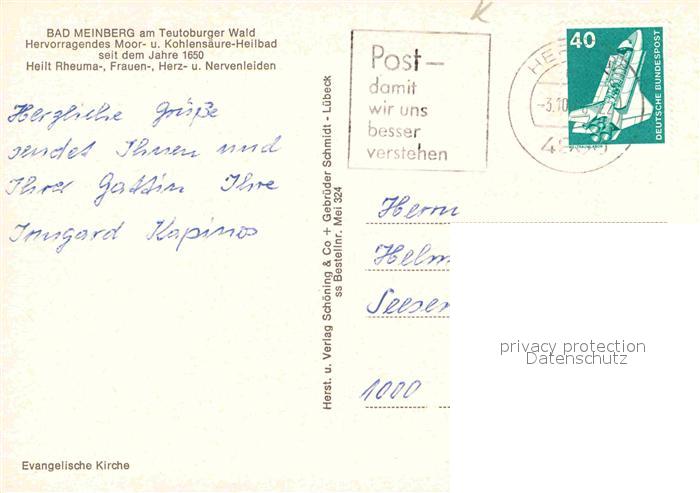 BAD MEINBERG am Teutoburger Wald
Hervorragendes Moor- u. Kohlensäure-Heilbad
seit dem Jahre 1650
Heilt Rheuma-, Frauen-, Herz- u. Nervenleiden
Herzliche Grüße
sendet Ihnen und
Ihrer Gattin Ihre
Irmgard Kapinos
Evangelische Kirche
Herst. u. Verlag Schöning & Co + Gebrüder Schmidt - Lübeck
ss Bestellnr. Mei 324
Post-
damit
wir uns
besser
verstehen
-3.10.
40
DEUTSCHE BUNDESPOST
Herrn
1000
privacy protection
Datenschutz